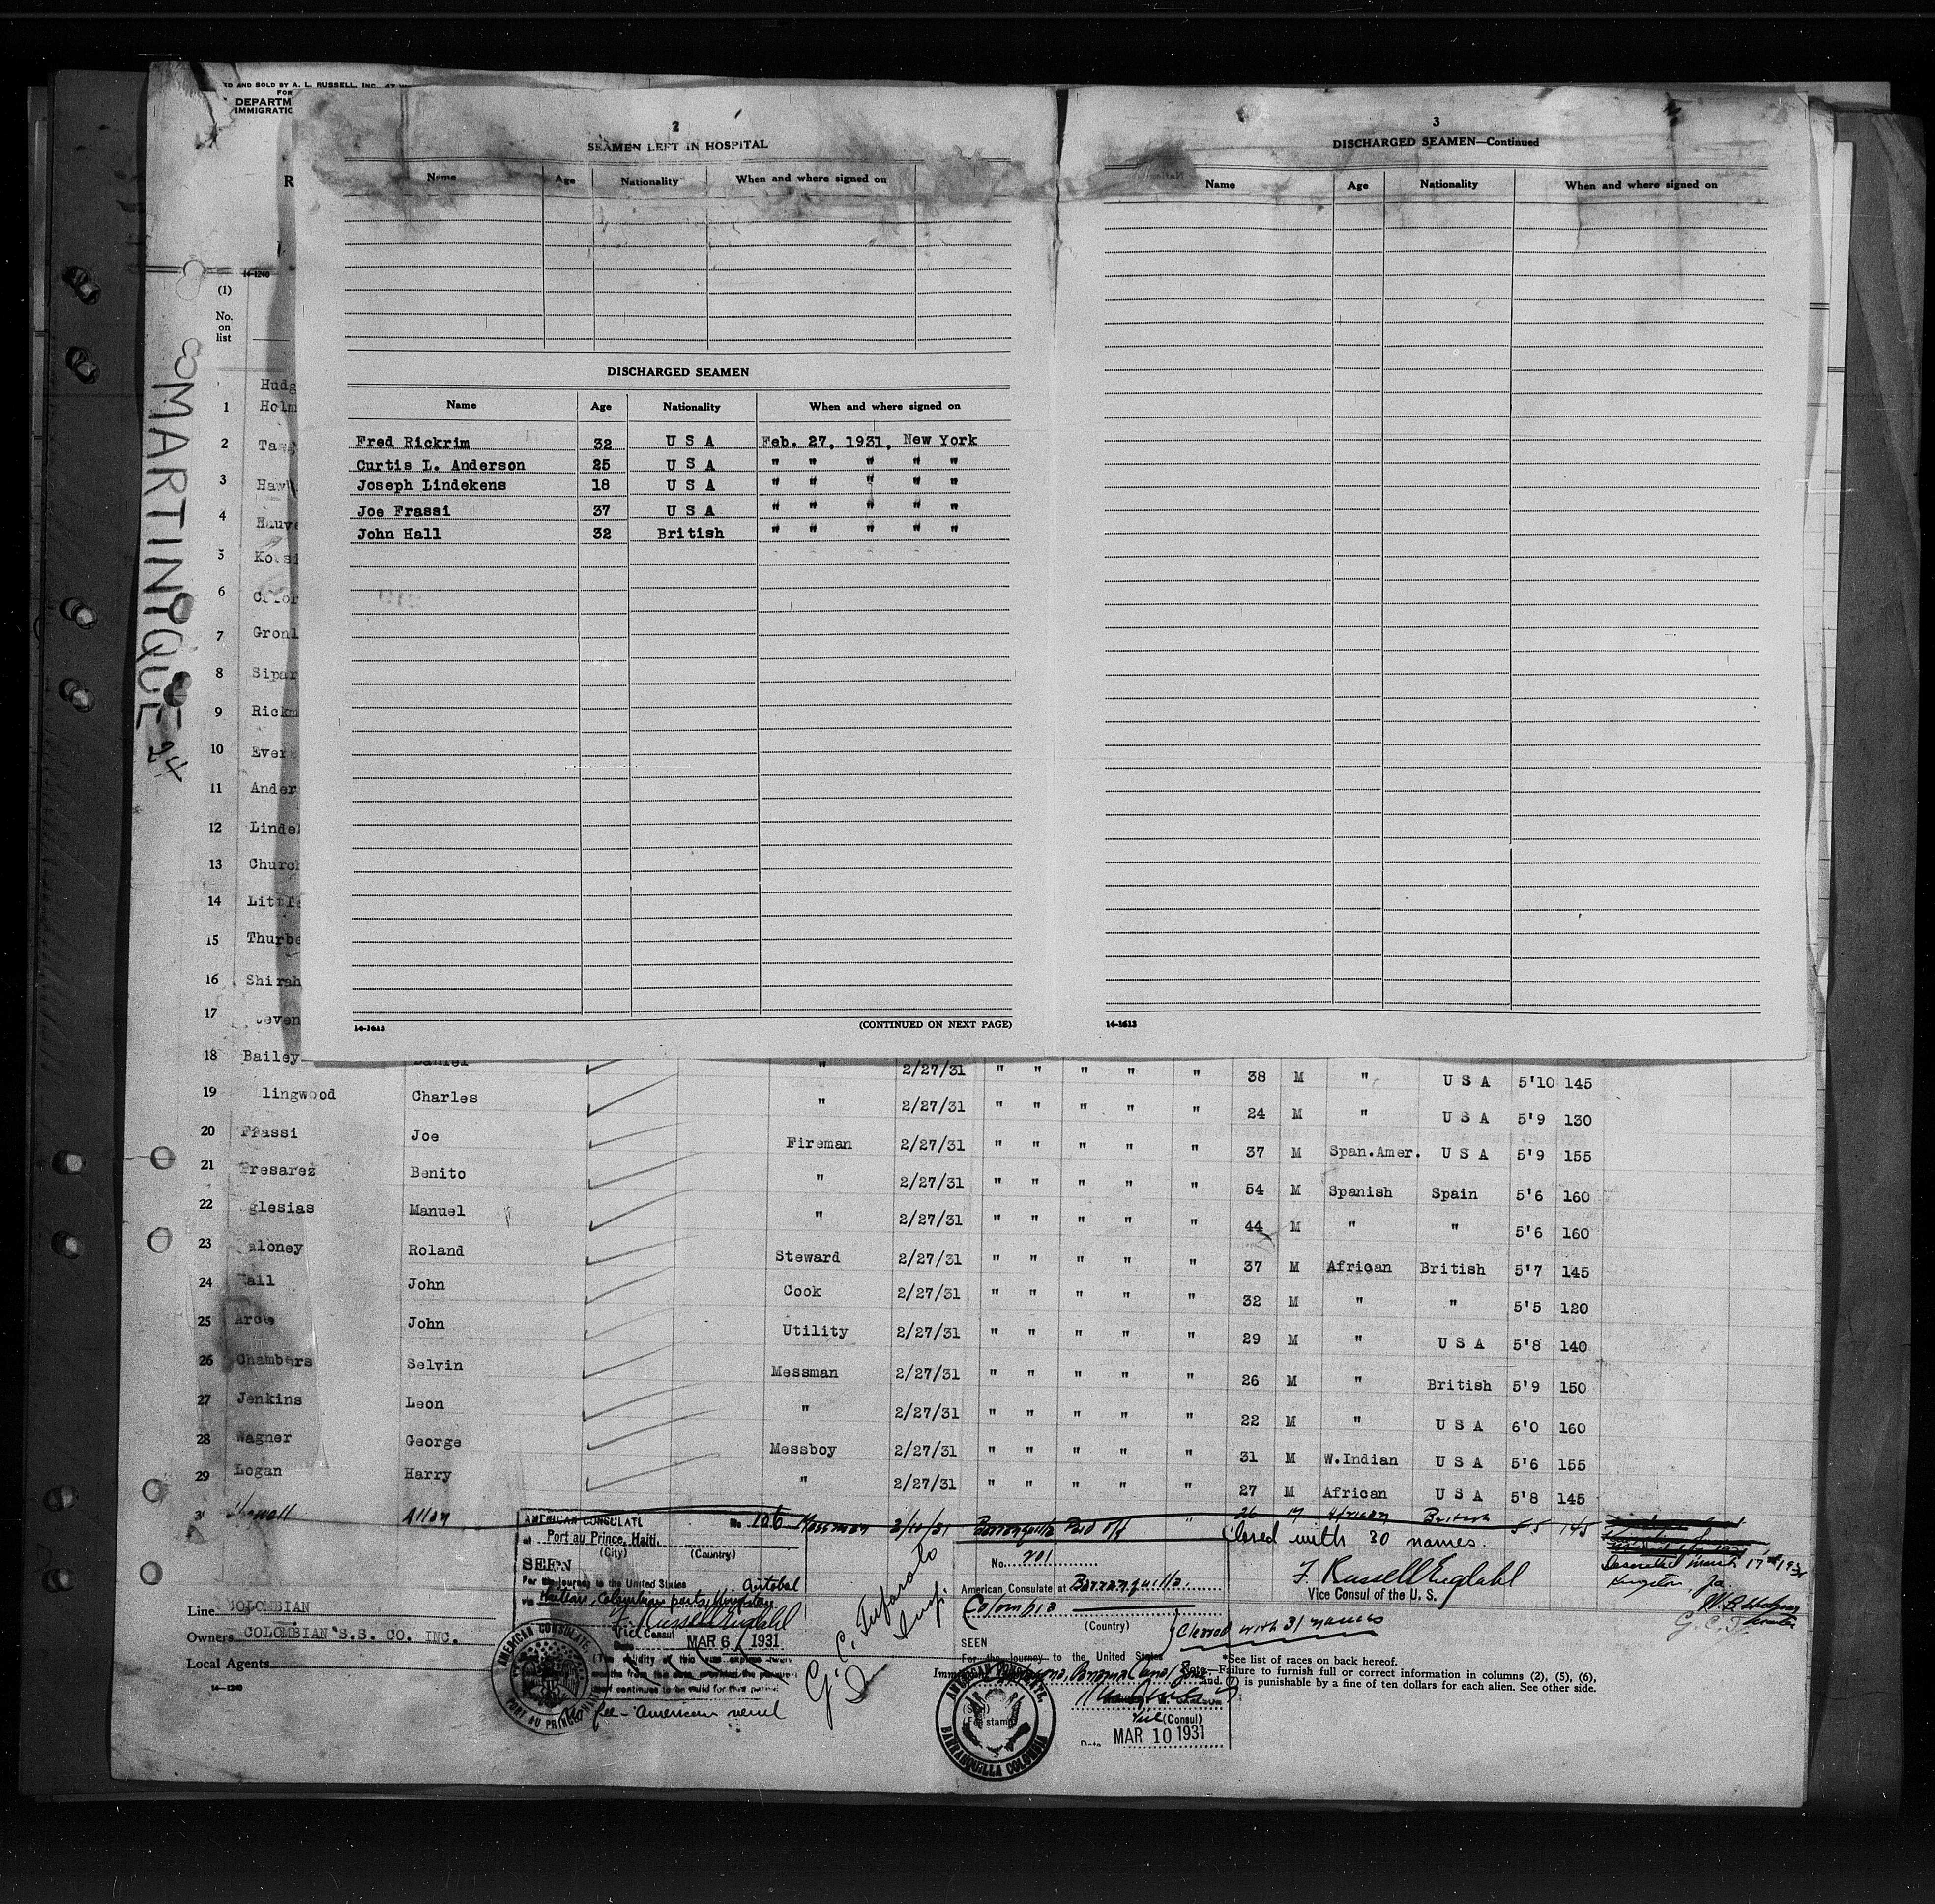 ED AND SOLD BY A. L. RUSSELL, INC.
FOR
DEPARTM
IMMIGRATIO
R
14-1240
(1)
No.
on
list
MARTINIQUE
24
2
SEAMEN LEFT IN HOSPITAL
Name Age Nationality When and where signed on
DISCHARGED SEAMEN
Name Age Nationality When and where signed on
Fred Rickrim 32 U S A Feb. 27, 1931, New York
Curtis L. Anderson 25 U S A " " " " "
Joseph Lindekens 18 U S A " " " " "
Joe Frassi 37 U S A " " " " "
John Hall 32 British " " " " "
14-1613 (CONTINUED ON NEXT PAGE)
3
DISCHARGED SEAMEN—Continued
Name Age Nationality When and where signed on
14-1613
Hudg
1 Holm
2 Tagg
3 Hawk
4 Hauve
5 Kotsi
6
7 Gronl
8 Sipar
9 Rickm
10 Ever
11 Ander
12 Lindek
13 Church
14 Little
15 Thurbe
16 Shirah
17 teven
18 Bailey Daniel " 2/27/31 " " " " " 38 M " U S A 5'10 145
19 lingwood Charles " 2/27/31 " " " " " 24 M " U S A 5'9 130
20 Frassi Joe Fireman 2/27/31 " " " " " 37 M Span.Amer. U S A 5'9 155
21 Presarez Benito " 2/27/31 " " " " " 54 M Spanish Spain 5'6 160
22 glesias Manuel " 2/27/31 " " " " " 44 M " " 5'6 160
23 aloney Roland Steward 2/27/31 " " " " " 37 M African British 5'7 145
24 Hall John Cook 2/27/31 " " " " " 32 M " " 5'5 120
25 Arce John Utility 2/27/31 " " " " " 29 M " U S A 5'8 140
26 Chambers Selvin Messman 2/27/31 " " " " " 26 M " British 5'9 150
27 Jenkins Leon " 2/27/31 " " " " " 22 M " U S A 6'0 160
28 Wagner George Messboy 2/27/31 " " " " " 31 M W.Indian U S A 5'6 155
29 Logan Harry " 2/27/31 " " " " " 27 M African U S A 5'8 145
Allan Messman 3/10/31 Barranquilla Paid off " 26 M African British 5 5 145
Closed with 30 names.
F. Russell Engdahl
Vice Consul of the U. S.
Deserted March 17th 1931
Kingston, Ja.
AMERICAN CONSULATE No. 106
at Port au Prince, Haiti.
(City) (Country)
SEEN
For the journey to the United States
via Haitian, Colombian ports, Kingston
F. Russell Engdahl
Vice Consul
Date MAR 6 1931
fee - American vessel
AMERICAN CONSULATE
PORT AU PRINCE HAITI
No. 201
American Consulate at Barranquilla.
Colombia
(Country)
Closed with 31 names
SEEN
For the journey to the United States
(Seal)
(Fee stamp)
Vice (Consul)
Date MAR 10 1931
AMERICAN CONSULATE,
BARRANQUILLA COLOMBIA
Line COLOMBIAN
Owners COLOMBIAN S.S. CO. INC.
Local Agents
14-1240
*See list of races on back hereof.
Note.—Failure to furnish full or correct information in columns (2), (5), (6),
and (7) is punishable by a fine of ten dollars for each alien. See other side.